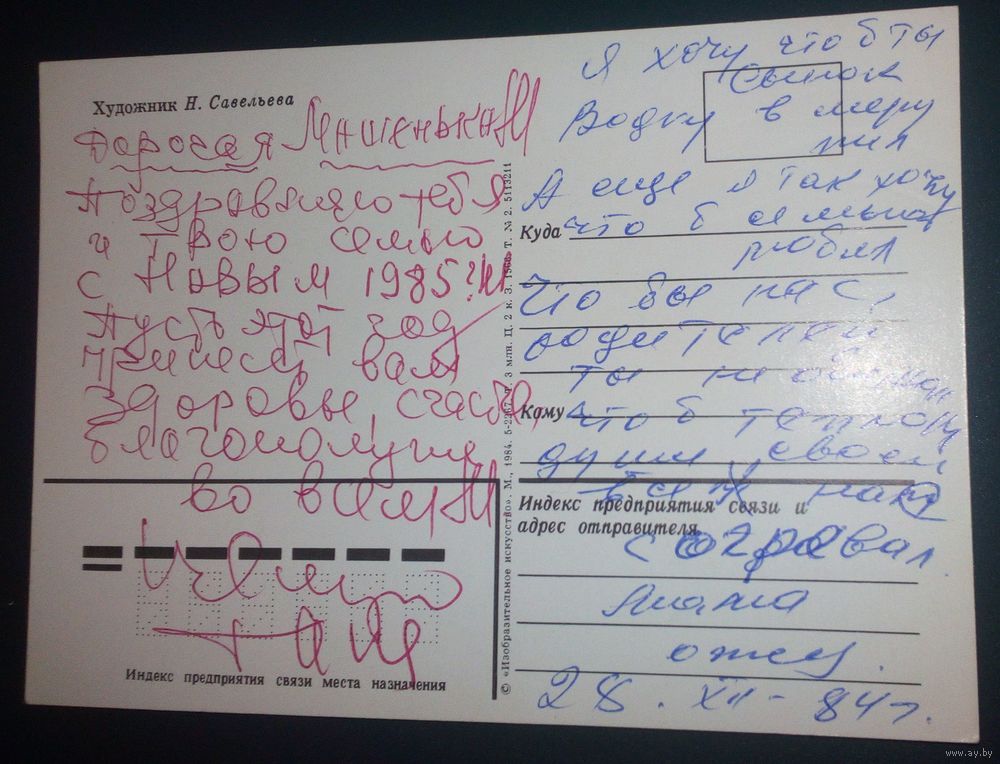 Художник Н. Савельева
Дорогая Машенька!!!
Поздравляю тебя
и твою семью
с Новым 1985 г!!!
Пусть этот год
принесет вам
здоровье, счастье,
благополучия
во всем!!!
Целую
Индекс предприятия связи места назначения
© «Изобразительное искусство». М., 1984. 5-2267. Т. 3 млн. Ц. 2 к. З. 1568. Т. № 2. 5113211
Я хочу что б ты
сынок
Водку в меру
пил
А еще я так хочу
Куда что б семью
любил
Что бы нас,
родителей
ты не
Кому что б теплотой
души своей
Индекс предприятия связи и
всех нас
адрес отправителя
согревал.
Мама
28. XII - 84 г.
www.ay.by